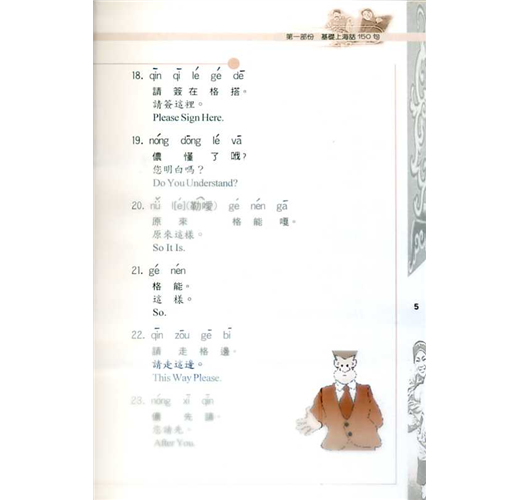 第一部份 基礎上海話 150 句
18. qīn qī lé gé dē
請 簽 在 格 搭。
請簽這裡。
Please Sign Here.
19. nóng dōng lé vā
儂 懂 了 哦?
您明白嗎?
Do You Understand?
20. nǖ l[é](勒噯) gé nén gā
原 來 格 能 嘎。
原來這樣。
So It Is.
21. gé nén
格 能。
這 樣。
So.
22. qīn zōu gē bī
請 走 格 邊。
請走這邊。
This Way Please.
23. nóng xī qīn
儂 先 請。
您請先。
After You.
5